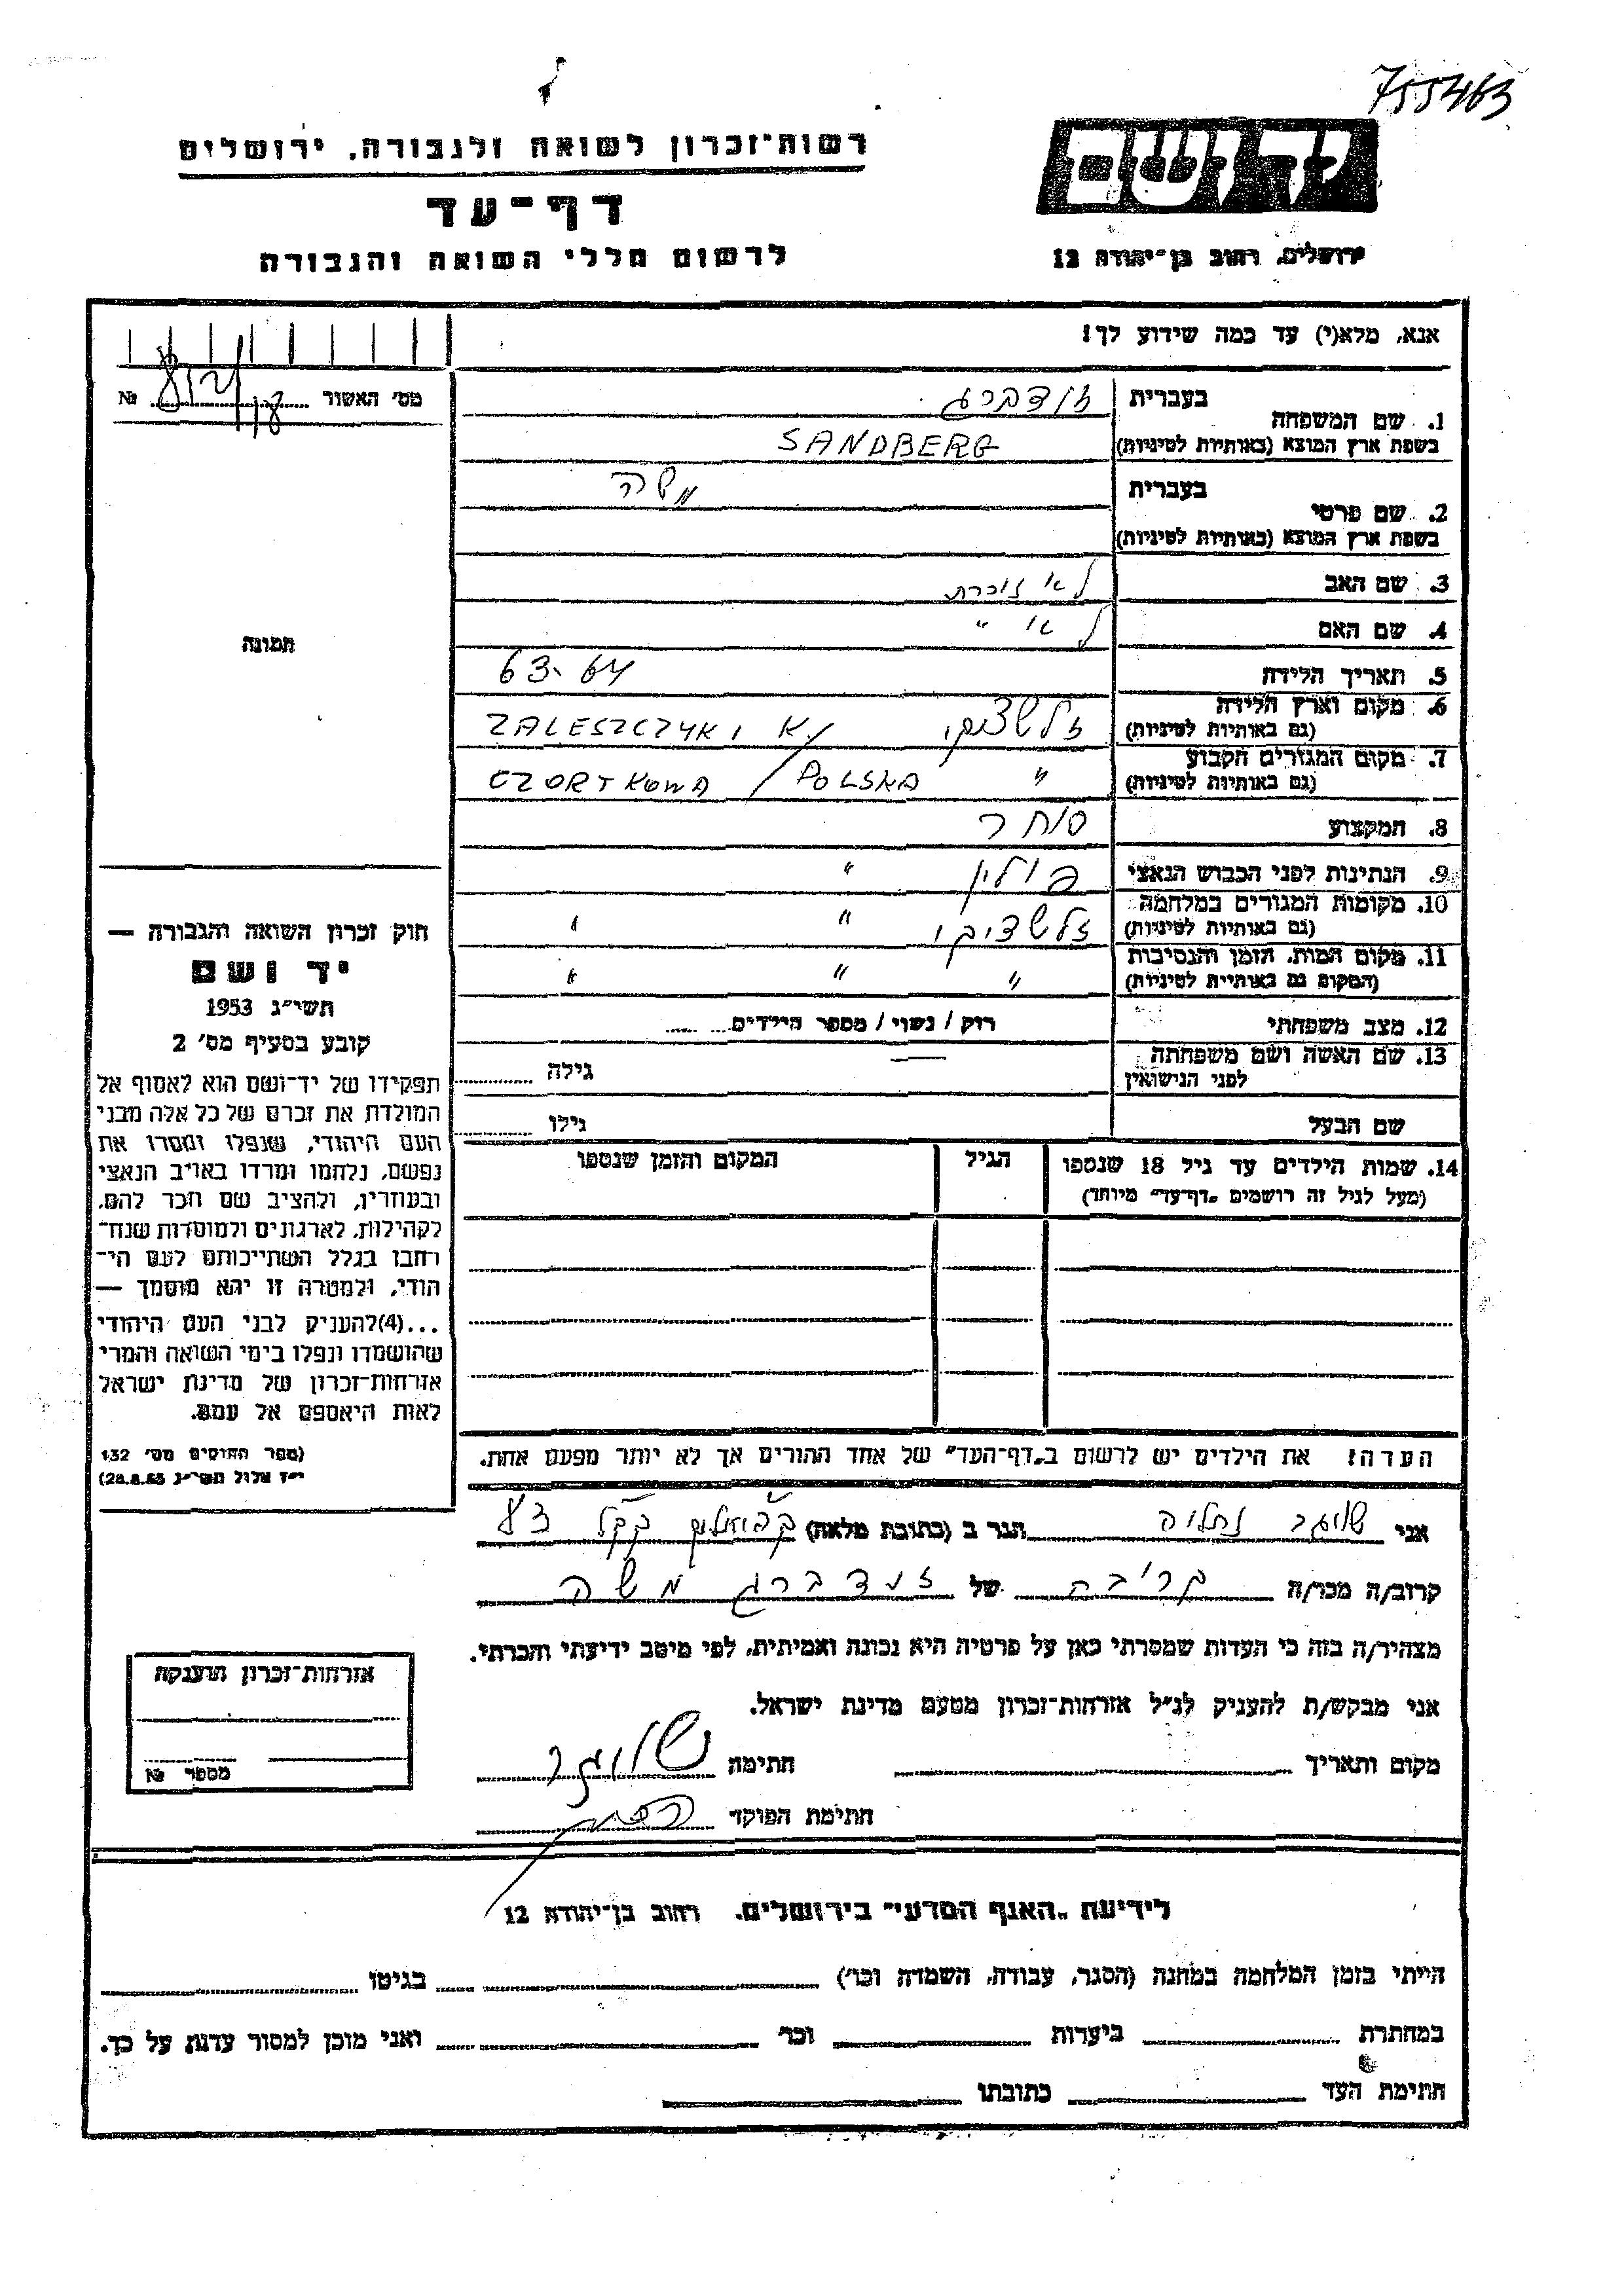 755463
רשות־זכרון לשואה ולגבורה, ירושלים
דף־עד
לרשום חללי השואה והגבורה
יד ושם
ירושלים, רחוב בן־יהודה 12
אנא, מלא(י) עד כמה שידוע לך!
מס׳ האשור № 
בעברית זנדברג
1. שם המשפחה
בשפת ארץ המוצא (באותיות לטיניות) SANDBERG
בעברית משה
2. שם פרטי
בשפת ארץ המוצא (באותיות לטיניות)
3. שם האב לא זוכרת
4. שם האם לא "
תמונה
5. תאריך הלידה 63-64
6. מקום וארץ הלידה
(גם באותיות לטיניות) זלשציקי ZALESZCZYKI K/
7. מקום המגורים הקבוע
(גם באותיות לטיניות) " CZORTKOWA / POLSKA
8. המקצוע סוחר
9. הנתינות לפני הכבוש הנאצי פולין "
10. מקומות המגורים במלחמה
(גם באותיות לטיניות) זלשציקי " "
11. מקום המות, הזמן והנסיבות
(המקום גם באותיות לטיניות) " " "
12. מצב משפחתי רווק / נשוי / מספר הילדים
13. שם האשה ושם משפחתה
לפני הנישואין — גילה
שם הבעל גילו
14. שמות הילדים עד גיל 18 שנספו הגיל המקום והזמן שנספו
(מעל לגיל זה רושמים „דף־עד" מיוחד)
חוק זכרון השואה והגבורה —
יד ושם
תשי״ג 1953
קובע בסעיף מס׳ 2
תפקידו של יד־ושם הוא לאסוף אל
המולדת את זכרם של כל אלה מבני
העם היהודי, שנפלו ומסרו את
נפשם, נלחמו ומרדו באויב הנאצי
ובעוזריו, ולהציב שם וזכר להם,
לקהילות, לארגונים ולמוסדות שנח־
רבו בגלל השתייכותם לעם הי־
הודי, ולמטרה זו יהא מוסמך —
...(4)להעניק לבני העם היהודי
שהושמדו ונפלו בימי השואה והמרי
אזרחות־זכרון של מדינת ישראל
לאות היאספם אל עמם.
(ספר החוקים מס׳ 132
י״ז אלול תשי״ג 28.8.53)
הערה! את הילדים יש לרשום ב„דף־העד" של אחד ההורים אך לא יותר מפעם אחת.
אני נחליה הגר ב (כתובת מלאה) קק"ל
קרוב/ה מכר/ה קרובה של זנדברג משה
מצהיר/ה בזה כי העדות שמסרתי כאן על פרטיה היא נכונה ואמיתית, לפי מיטב ידיעתי והכרתי.
אני מבקש/ת להעניק לנ״ל אזרחות־זכרון מטעם מדינת ישראל.
מקום ותאריך חתימה
חתימת הפוקד
אזרחות־זכרון הוענקה
מספר №
לידיעת „האגף המדעי" בירושלים, רחוב בן־יהודה 12
הייתי בזמן המלחמה במחנה (הסגר, עבודה, השמדה וכו׳) בגיטו
במחתרת ביערות וכו׳ ואני מוכן למסור עדות על כך.
חתימת העד כתובתו